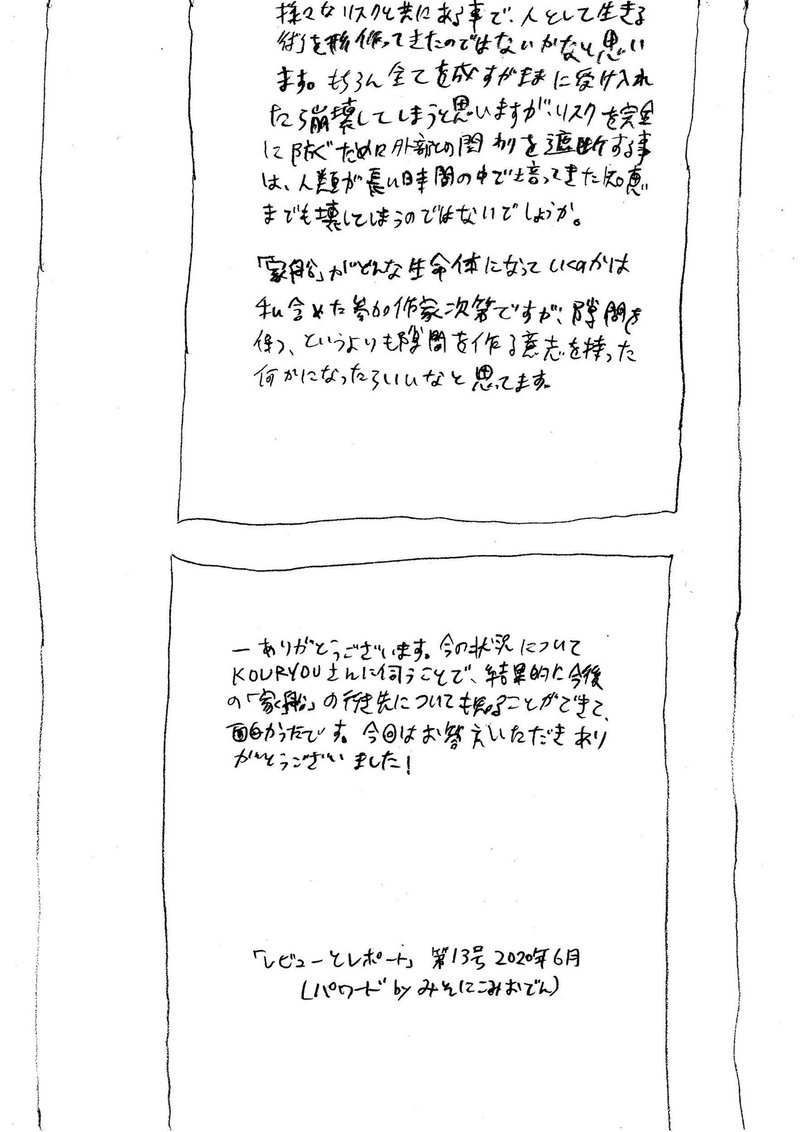 様々なリスクと共にある事で、人として生きる
術を形作ってきたのではないかなと思い
ます。もちろん全てを成すがままに受け入れ
たら崩壊してしまうと思いますが、リスクを完全
に防ぐために外部との関わりを遮断する事
は、人類が長い時間の中で培ってきた知恵
までも壊してしまうのではないでしょうか。
「家船」がどんな生命体になっていくのかは
私含めた参加作家次第ですが、隙間を
使う、というよりも隙間を作る意志を持った
何かになったらいいなと思ってます。
ーありがとうございます。今の状況について
KOURYOUさんに伺うことで、結果的に今後
の「家船」の行き先についても知ることができて、
面白かったです。今回はお答えいただきあり
がとうございました!
「レビューとレポート」 第13号 2020年6月
(パワード by みそにこみおでん)